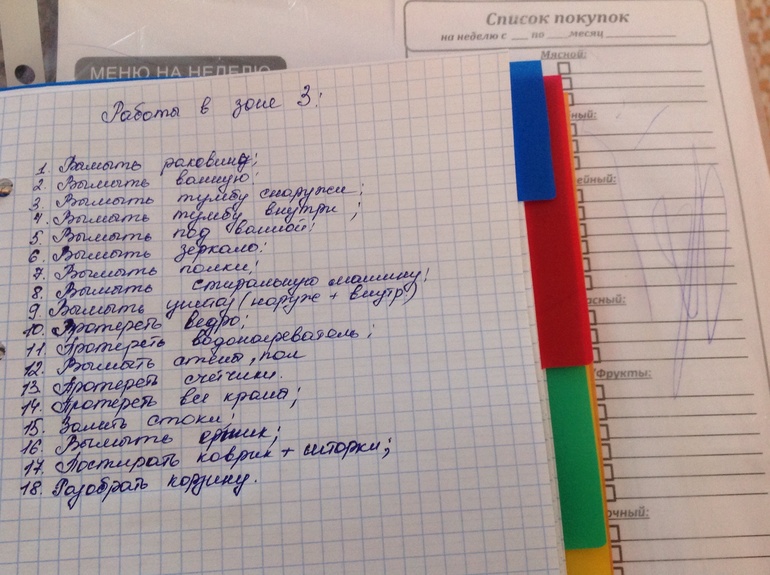 Список покупок
на неделю с ___ по ___ месяц ________
МЕНЮ НА НЕДЕЛЮ
Мясной:
ный:
ейный:
асный:
/Фрукты:
очный:
Работы в зоне 3:
1. Вымыть раковину;
2. Вымыть ванную;
3. Вымыть тумбу снаружи;
4. Вымыть тумбу внутри;
5. Вымыть под ванной;
6. Вымыть зеркало;
7. Вымыть полки;
8. Вымыть стиральную машину;
9. Вымыть (наруже + внутр)
10. Протереть ведро;
11. Протереть водонагреватель;
12. Вымыть стены, пол
13. Протереть счётчики.
14. Протереть все крана;
15. Залить стоки;
16. Вымыть ершик;
17. Постирать коврик + шторки;
18. Разобрать корзину.